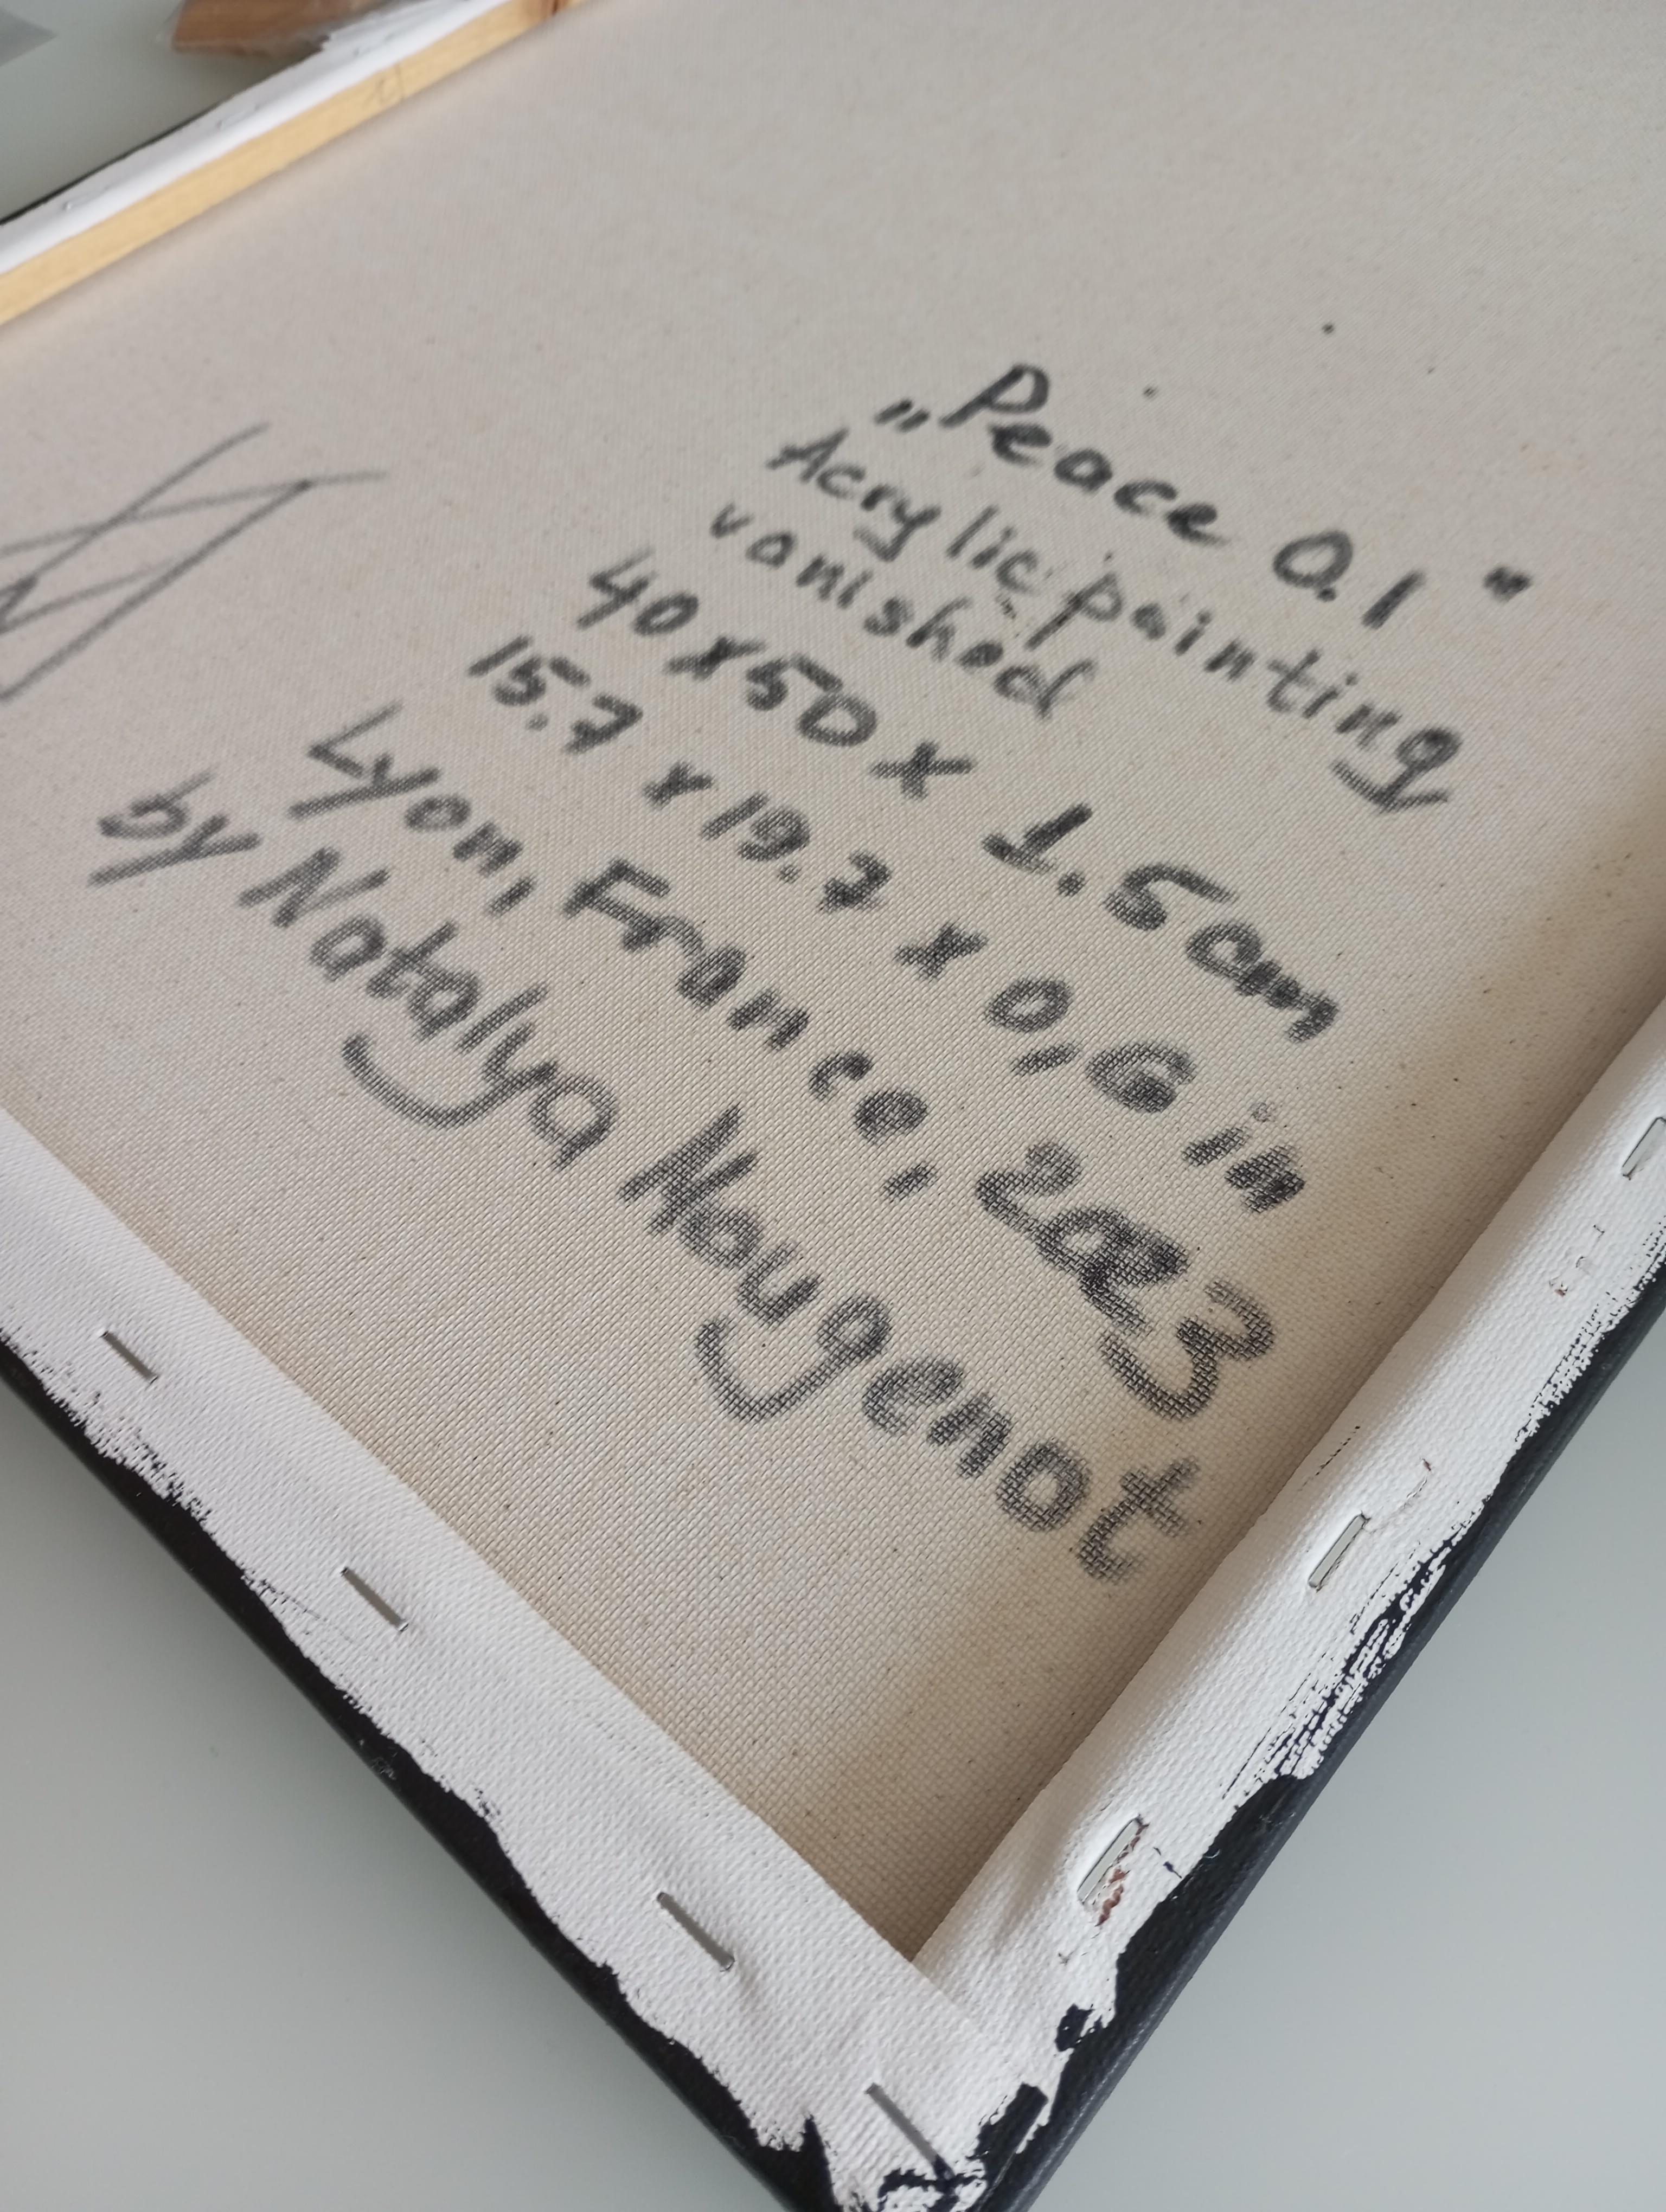 „Peace 0.1"
Acrylic painting
vanished
40 x 50 x 1.5cm
15.7 x 19.7 x 0,6 in
Lyon, France, 2023
by Natalya Hougenot